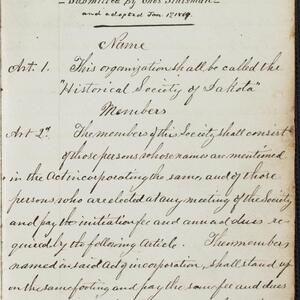 Submitted by Enos Stutsman
and adopted Jan. 1st 1869.
Name
Art. 1. This organization shall be called the
"Historical Society of Dakota"
Members
Art 2d. The members of this Society shall consist
of those persons, whose names are mentioned
in the Act incorporating the same, and of those
persons, who are elected at any meeting of the Society,
and pay the initiation fee and annual dues re-
quired by the following Article. The members
named in said Act of incorporation, shall stand up
on the same footing and pay the same fee and dues